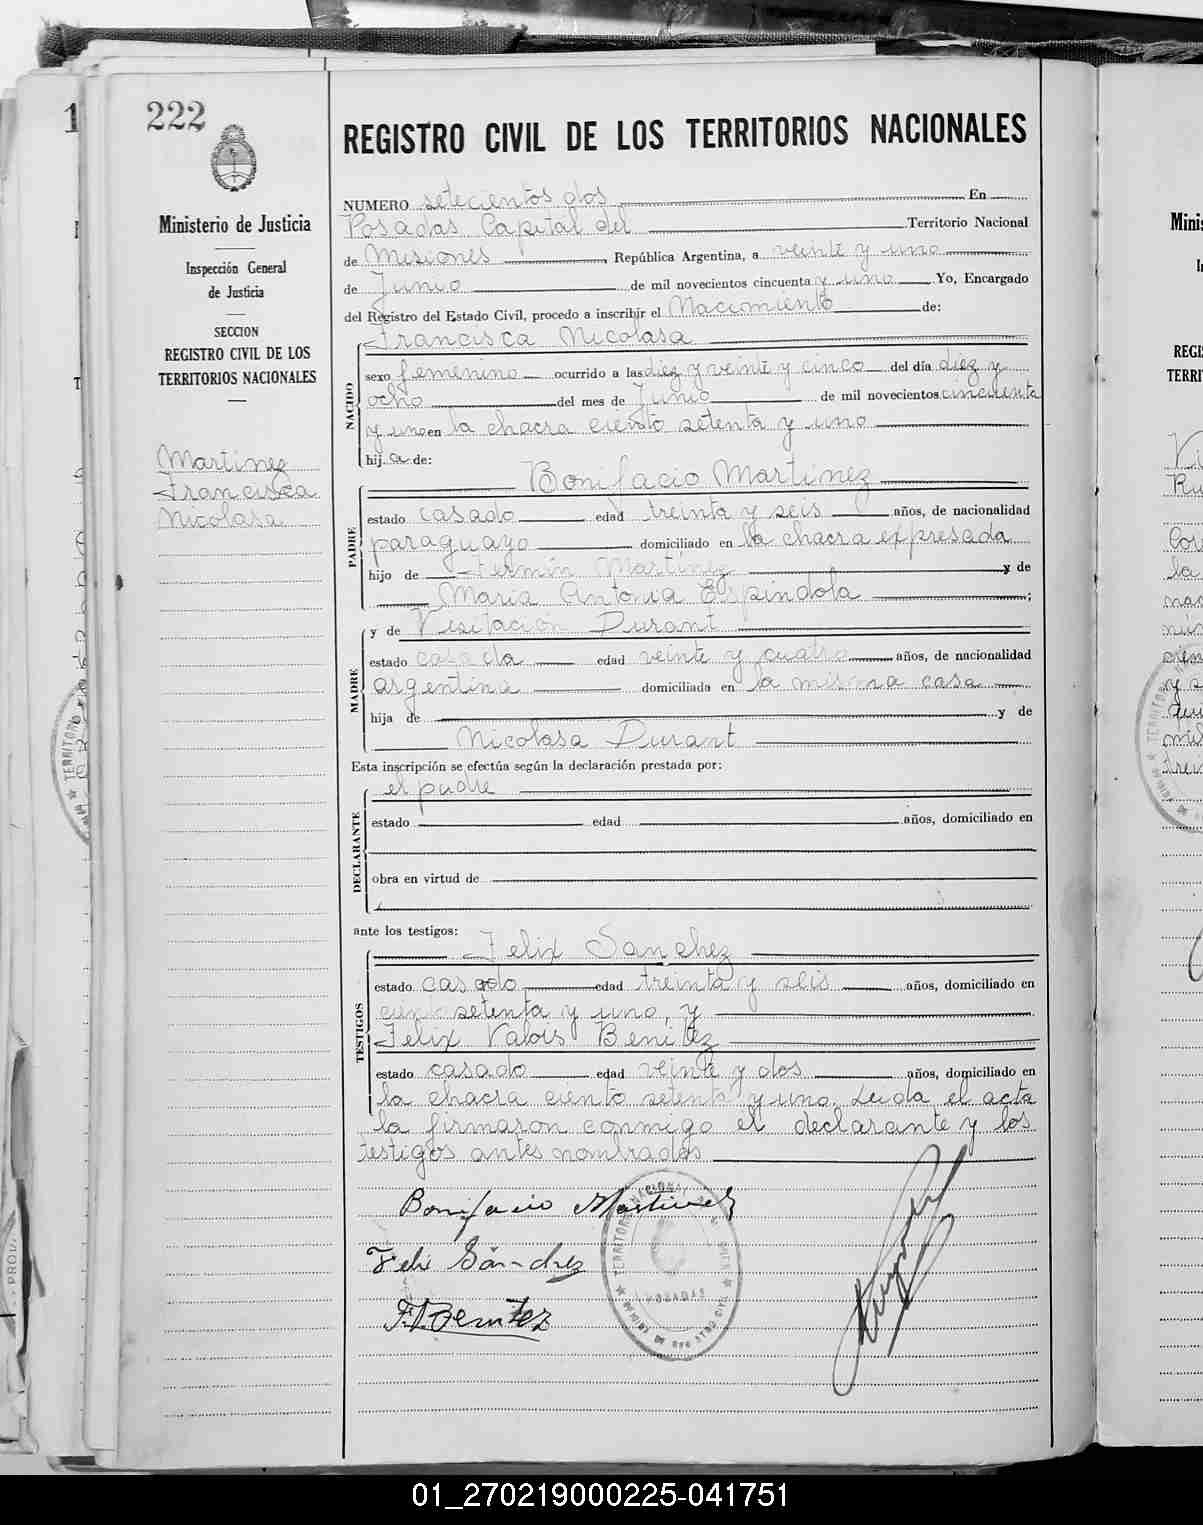 222
Ministerio de Justicia
Inspección General
de Justicia
SECCION
REGISTRO CIVIL DE LOS
TERRITORIOS NACIONALES
Martinez
Francisca
Nicolasa
REGISTRO CIVIL DE LOS TERRITORIOS NACIONALES
NUMERO setecientos dos En
Posadas Capital del Territorio Nacional
de Misiones, República Argentina, a veinte y uno
de Junio de mil novecientos cincuenta y uno Yo, Encargado
del Registro del Estado Civil, procedo a inscribir el Nacimiento de:
Francisca Nicolasa
NACIDO
sexo femenino ocurrido a las diez y veinte y cinco del día diez y
ocho del mes de Junio de mil novecientos cincuenta
y uno en la chacra ciento setenta y uno
hija de:
Bonifacio Martinez
PADRE
estado casado edad treinta y seis años, de nacionalidad
paraguayo domiciliado en la chacra expresada
hijo de Fermín Martínez y de
Maria Antonia Espindola;
y de Visitación Durant
MADRE
estado casada edad veinte y cuatro años, de nacionalidad
argentina domiciliada en la misma casa
hija de y de
Nicolasa Durant
Esta inscripción se efectúa según la declaración prestada por:
el padre
DECLARANTE
estado edad años, domiciliado en
obra en virtud de
ante los testigos:
Felix Sanchez
TESTIGOS
estado casado edad treinta y seis años, domiciliado en
ciento setenta y uno, y
Felix Valois Benitez
estado casado edad veinte y dos años, domiciliado en
la chacra ciento setenta y uno. Leida el acta
la firmaron conmigo el declarante y los
testigos antes nombrados
Bonifacio Martinez
Felix Sánchez
F. V. Benitez
POSADAS
01_270219000225-041751